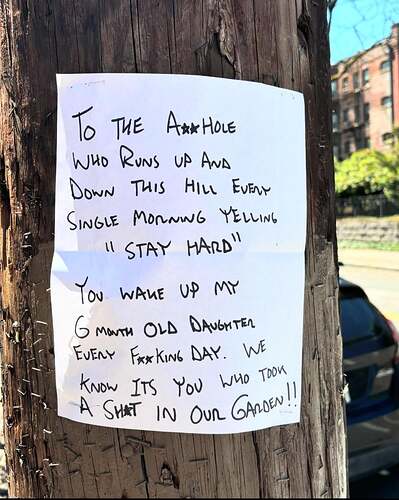 To THE A★★HOLE
WHO RUNS UP AND
DOWN THIS HILL EVERY
SINGLE MORNING YELLING
"STAY HARD"
YOU WAKE UP MY
6 MONTH OLD DAUGHTER
EVERY F★★KING DAY. WE
KNOW ITS YOU WHO TOOK
A SH★T IN OUR GARDEN!!